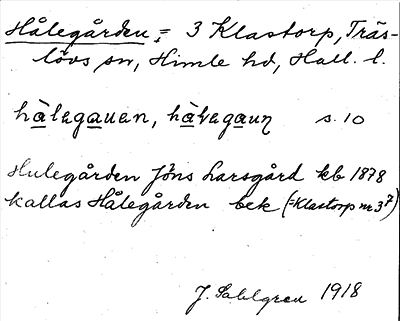 Hålegården, = 3 Klastorp, Träs-
lövs sn, Himle hd, Hall. l.
hàlegauen, hàlegaun s. 10
Hulegården Jöns Larsgård kb 1878
kallas Hålegården bek (=Klastorp nr 3⁷)
J. Sahlgren 1918